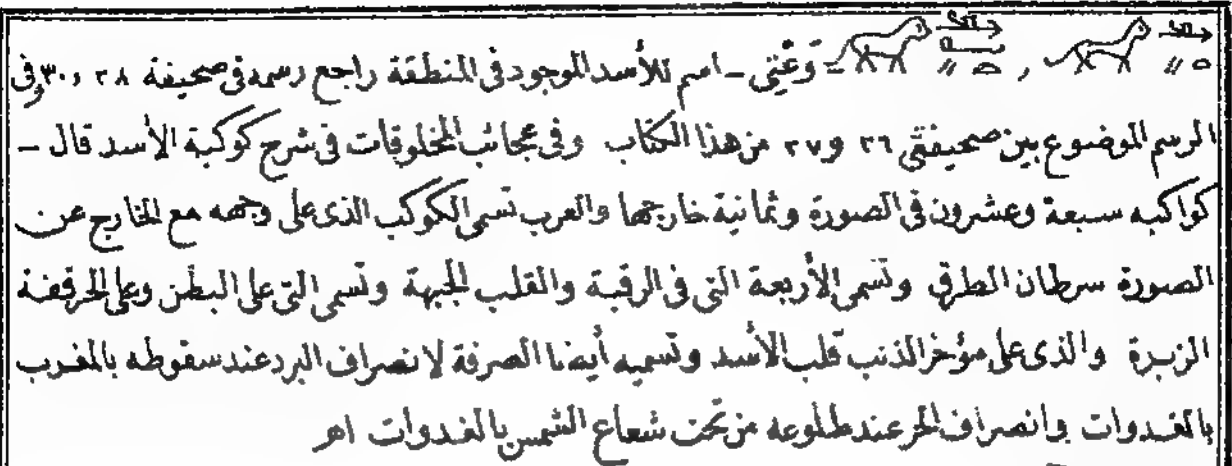 وَعْتِى - اسم للأسد الموجود فى المنطقة راجع رسمه فى صحيفة ٢٨ و٣٠ وفى
الرسم الموضوع بين صحيفتى ٢٦ و٢٧ من هذا الكتاب وفى عجائب المخلوقات فى شرح كوكبة الأسد قال -
كواكبه سبعة وعشرون فى الصورة وثمانية خارجها والعرب تسمى الكوكب الذى على وجهه مع الخارج عن
الصورة سرطان الطرف وتسمى الأربعة التى فى الرقبة والقلب الجبهة وتسمى التى على البطن وعلى الحرقفة
الزبرة والذى على مؤخر الذنب قلب الأسد وتسميه أيضا الصرفة لانصراف البرد عند سقوطه بالمغرب
بالغدوات وانصراف الحر عند طلوعه من تحت شعاع الشمس بالغدوات اهر